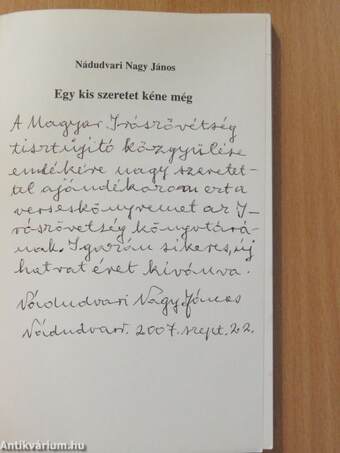 Nádudvari Nagy János
Egy kis szeretet kéne még
A Magyar Irószövétség
tisztújitó közgyülése
emlékére nagy szeretet-
tel ajándékozom ezt a
verseskönyvemet az I-
rószövetség könyvtárá-
nak. Igazán sikeres, új
hatvat évet kívánva.
Nádudvari Nagy János
Nádudvari. 2007. szept. 22.
Antikvárium.hu